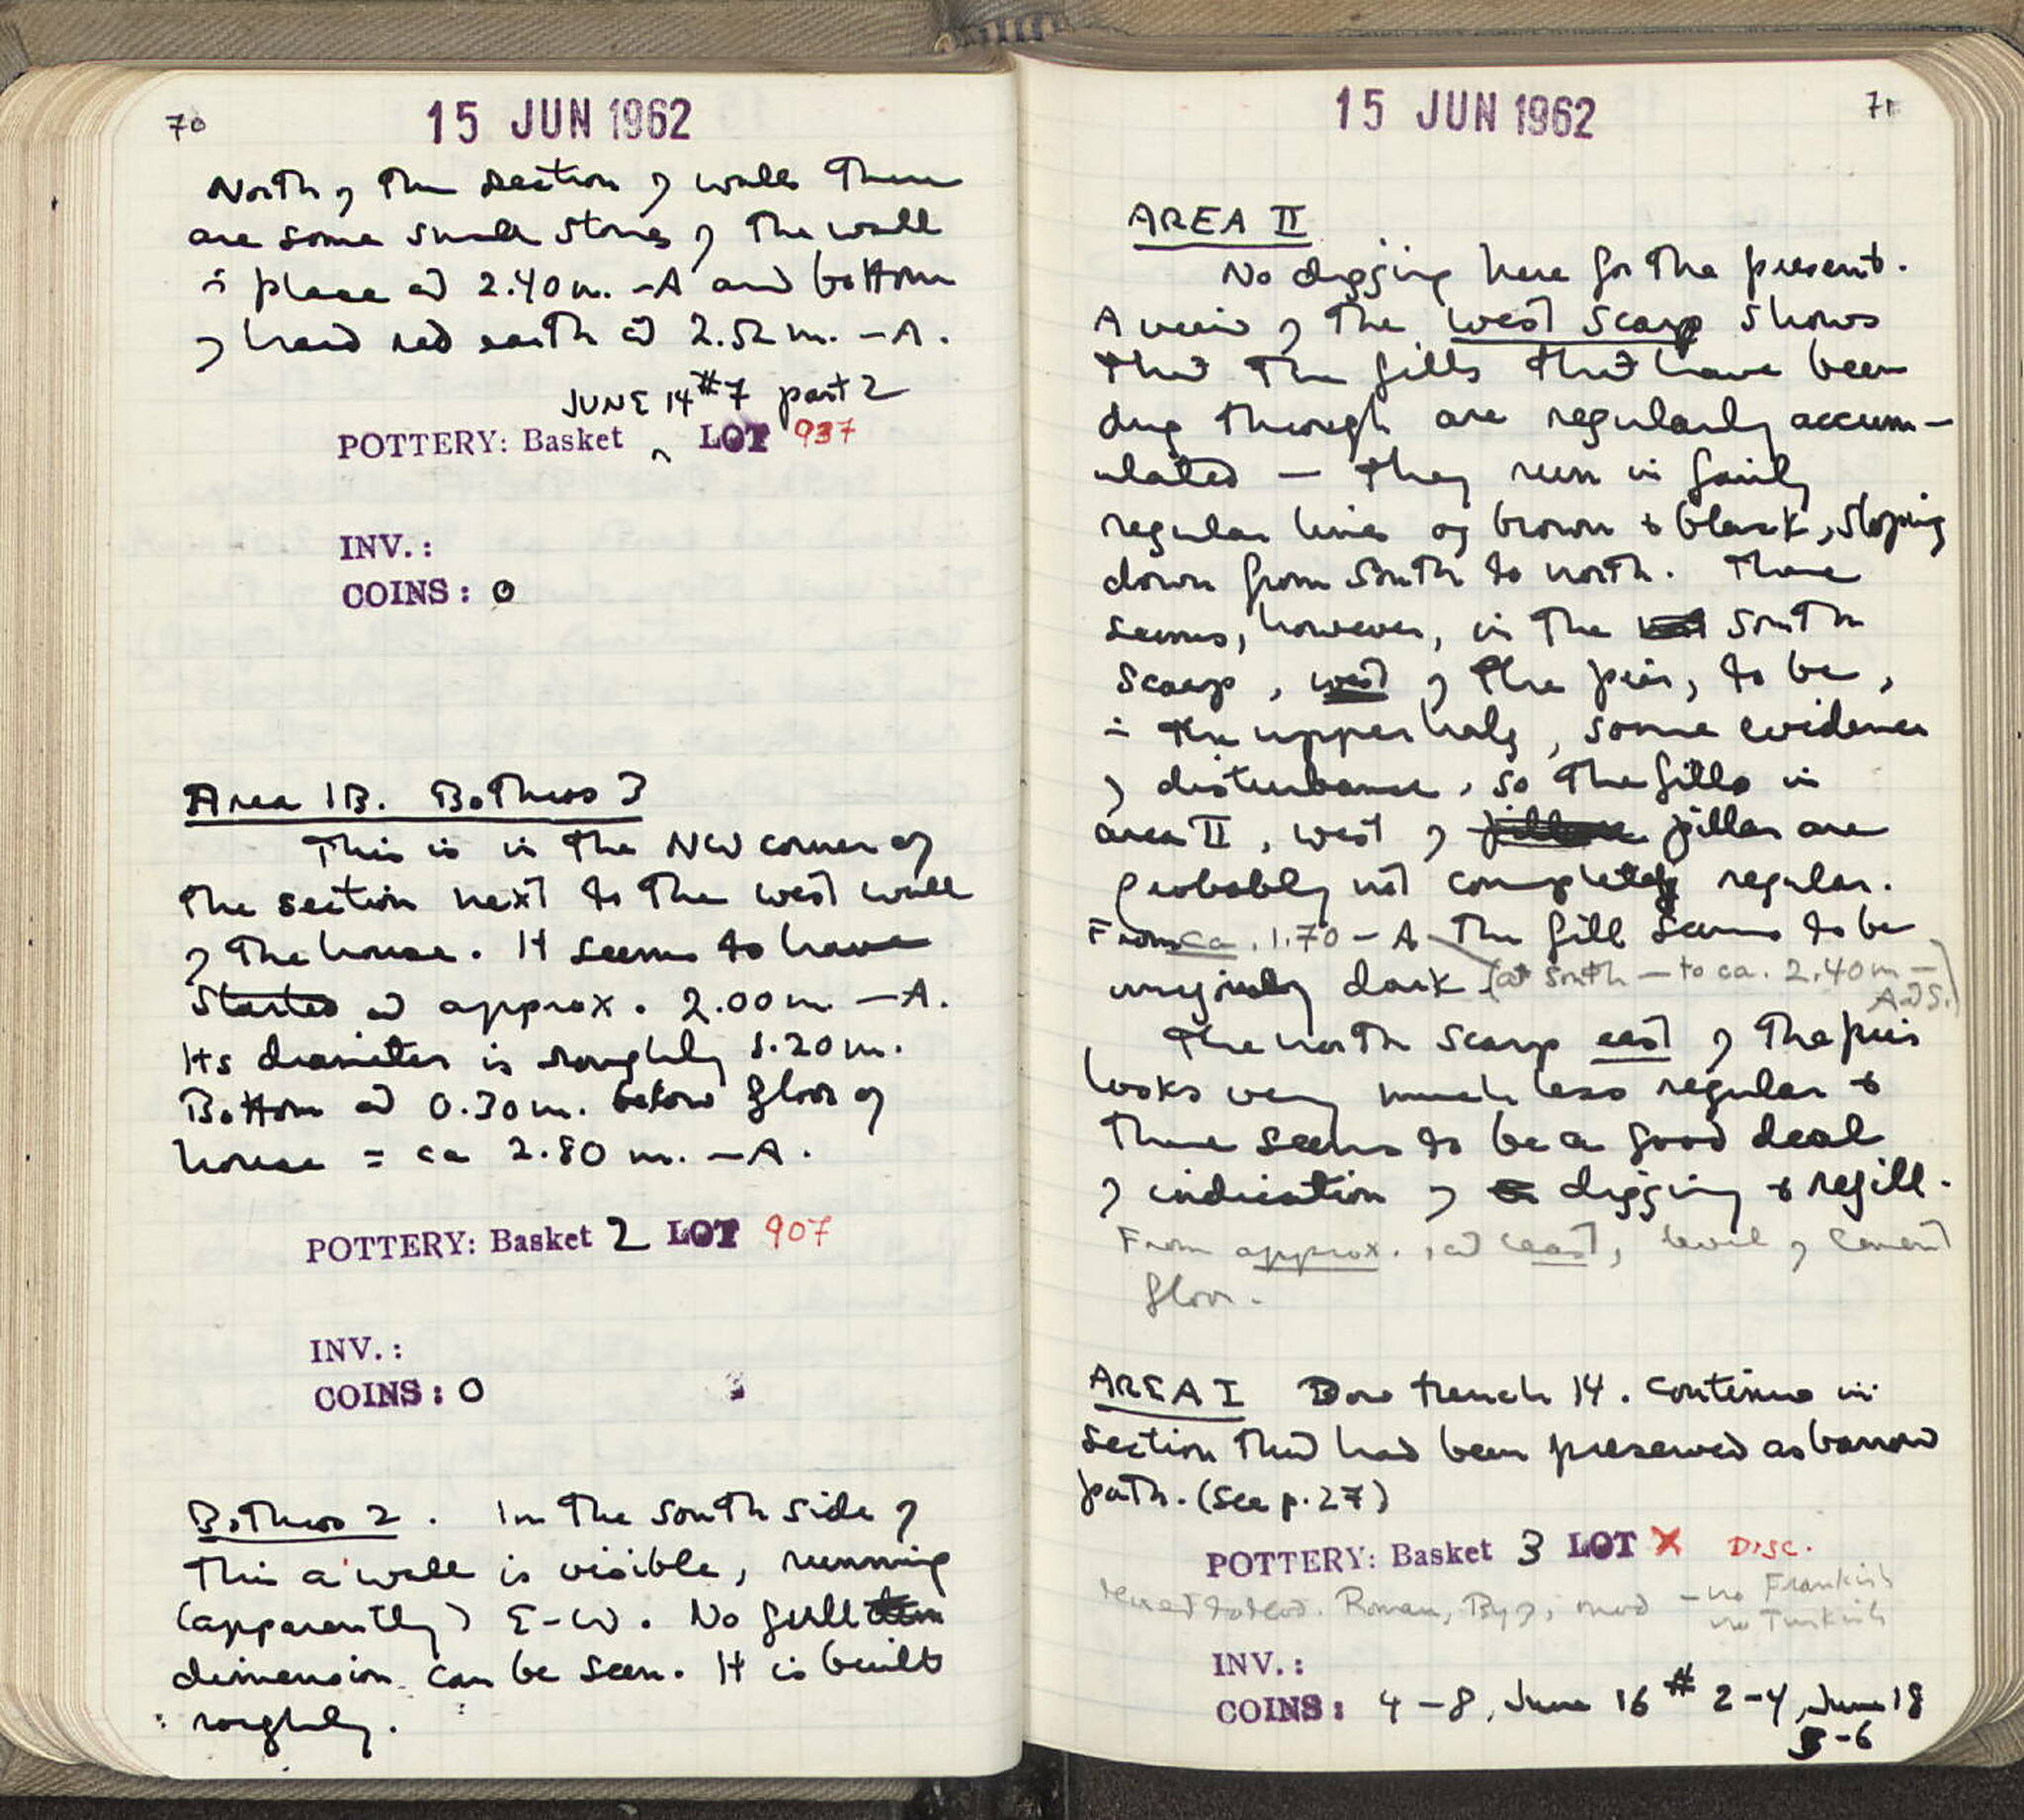 70
15 JUN 1962
North of the section of walls there
are some small stones of the wall
in place at 2.40 m. -A and bottom
of hard red earth at 2.52 m. -A.
JUNE 14 #7 part 2
POTTERY: Basket ^ LOT 937
INV.:
COINS: 0
Area 1B. Bothros 3
This is in the NW corner of
the section next to the west wall
of the house. It seems to have
started at approx. 2.00 m. -A.
Its diameter is roughly 1.20 m.
Bottom at 0.30 m. below floor of
house = ca 2.80 m. -A.
POTTERY: Basket 2 LOT 907
INV.:
COINS: 0
Bothros 2. In the south side of
this a wall is visible, running
(apparently) E-W. No full
dimension can be seen. It is built
roughly.
15 JUN 1962
71
AREA II
No digging here for the present.
A view of the west scarp shows
that the fills that have been
dug through are regularly accum-
ulated — they run in fairly
regular lines of brown & black, sloping
down from south to north. There
seems, however, in the south
scarp, west of the pier, to be,
in the upper half, some evidence
of disturbance, so the fills in
area II, west of pillar are
probably not completely regular.
From ca. 1.70 - A the fill seems to be
uniformly dark (at south — to ca. 2.40 m —
A at S.)
The north scarp east of the pier
looks very much less regular &
there seems to be a good deal
of indication of digging & refill.
From approx., at least, level of cement
floor.
AREA I Dow trench 14. Continue in
section that had been preserved as barrow
path. (See p. 27)
POTTERY: Basket 3 LOT X DISC.
Roman, Byz, mod — no Frankish
no Turkish
INV.:
COINS: 4-8, June 16 # 2-4, June 18
5-6